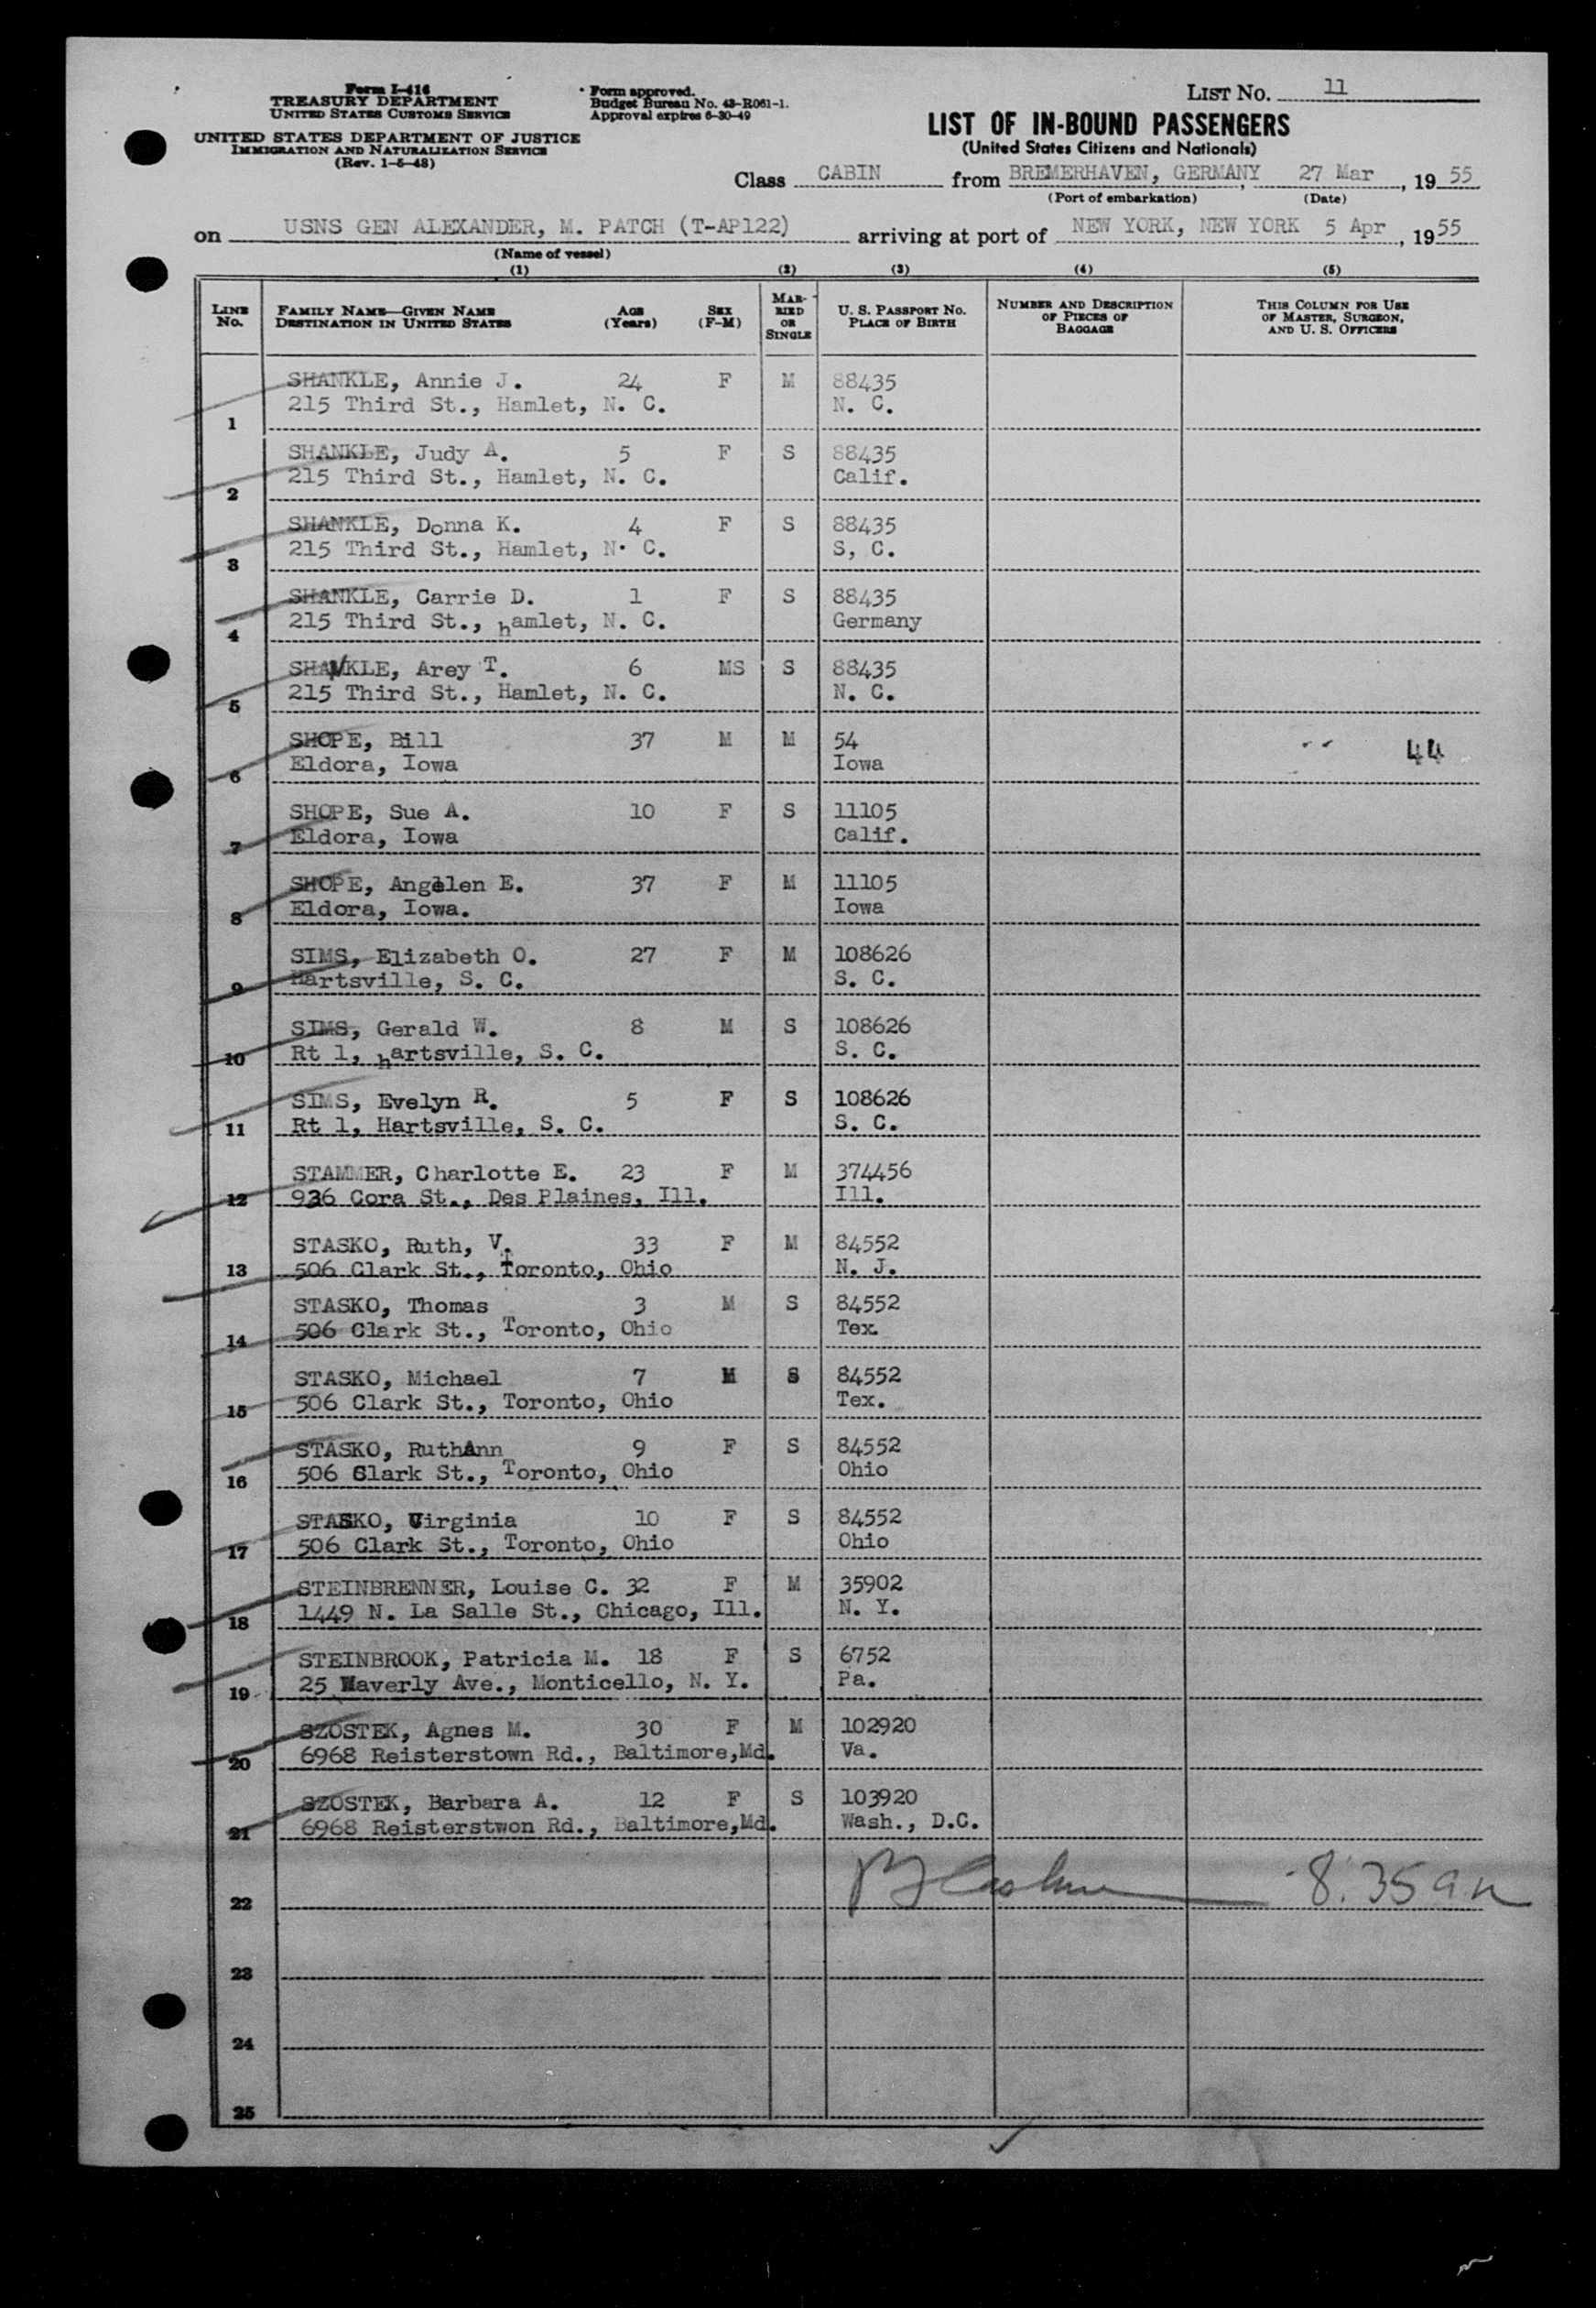 Form I-416
TREASURY DEPARTMENT
UNITED STATES CUSTOMS SERVICE
UNITED STATES DEPARTMENT OF JUSTICE
IMMIGRATION AND NATURALIZATION SERVICE
(Rev. 1-5-48)
Form approved.
Budget Bureau No. 43-R061-1.
Approval expires 6-30-49
LIST No. 11
LIST OF IN-BOUND PASSENGERS
(United States Citizens and Nationals)
Class CABIN from BREMERHAVEN, GERMANY, 27 Mar, 1955
(Port of embarkation) (Date)
on USNS GEN ALEXANDER, M. PATCH (T-AP122) arriving at port of NEW YORK, NEW YORK 5 Apr, 1955
(Name of vessel)
(1) (2) (3) (4) (5)
LINE No.
FAMILY NAME—GIVEN NAME
DESTINATION IN UNITED STATES
AGE (Years)
SEX (F-M)
MARRIED OR SINGLE
U. S. PASSPORT NO.
PLACE OF BIRTH
NUMBER AND DESCRIPTION OF PIECES OF BAGGAGE
THIS COLUMN FOR USE OF MASTER, SURGEON, AND U. S. OFFICERS
SHANKLE, Annie J. 24 F M 88435
1 215 Third St., Hamlet, N. C. N. C.
SHANKLE, Judy A. 5 F S 88435
2 215 Third St., Hamlet, N. C. Calif.
SHANKLE, Donna K. 4 F S 88435
3 215 Third St., Hamlet, N. C. S, C.
SHANKLE, Carrie D. 1 F S 88435
4 215 Third St., hamlet, N. C. Germany
SHANKLE, Arey T. 6 MS S 88435
5 215 Third St., Hamlet, N. C. N. C.
SHOPE, Bill 37 M M 54 44
6 Eldora, Iowa Iowa
SHOPE, Sue A. 10 F S 11105
7 Eldora, Iowa Calif.
SHOPE, Angelen E. 37 F M 11105
8 Eldora, Iowa. Iowa
SIMS, Elizabeth O. 27 F M 108626
9 Hartsville, S. C. S. C.
SIMS, Gerald W. 8 M S 108626
10 Rt 1, hartsville, S. C. S. C.
SIMS, Evelyn R. 5 F S 108626
11 Rt 1, Hartsville, S. C. S. C.
STAMMER, Charlotte E. 23 F M 374456
12 936 Cora St., Des Plaines, Ill. Ill.
STASKO, Ruth, V. 33 F M 84552
13 506 Clark St., Toronto, Ohio N. J.
STASKO, Thomas 3 M S 84552
14 506 Clark St., Toronto, Ohio Tex.
STASKO, Michael 7 M S 84552
15 506 Clark St., Toronto, Ohio Tex.
STASKO, RuthAnn 9 F S 84552
16 506 Clark St., Toronto, Ohio Ohio
STASKO, Virginia 10 F S 84552
17 506 Clark St., Toronto, Ohio Ohio
STEINBRENNER, Louise C. 32 F M 35902
18 1449 N. La Salle St., Chicago, Ill. N. Y.
STEINBROOK, Patricia M. 18 F S 6752
19 25 Waverly Ave., Monticello, N. Y. Pa.
SZOSTEK, Agnes M. 30 F M 102920
20 6968 Reisterstown Rd., Baltimore,Md. Va.
SZOSTEK, Barbara A. 12 F S 103920
21 6968 Reisterstwon Rd., Baltimore,Md. Wash., D.C.
22 8:35 am
23
24
25